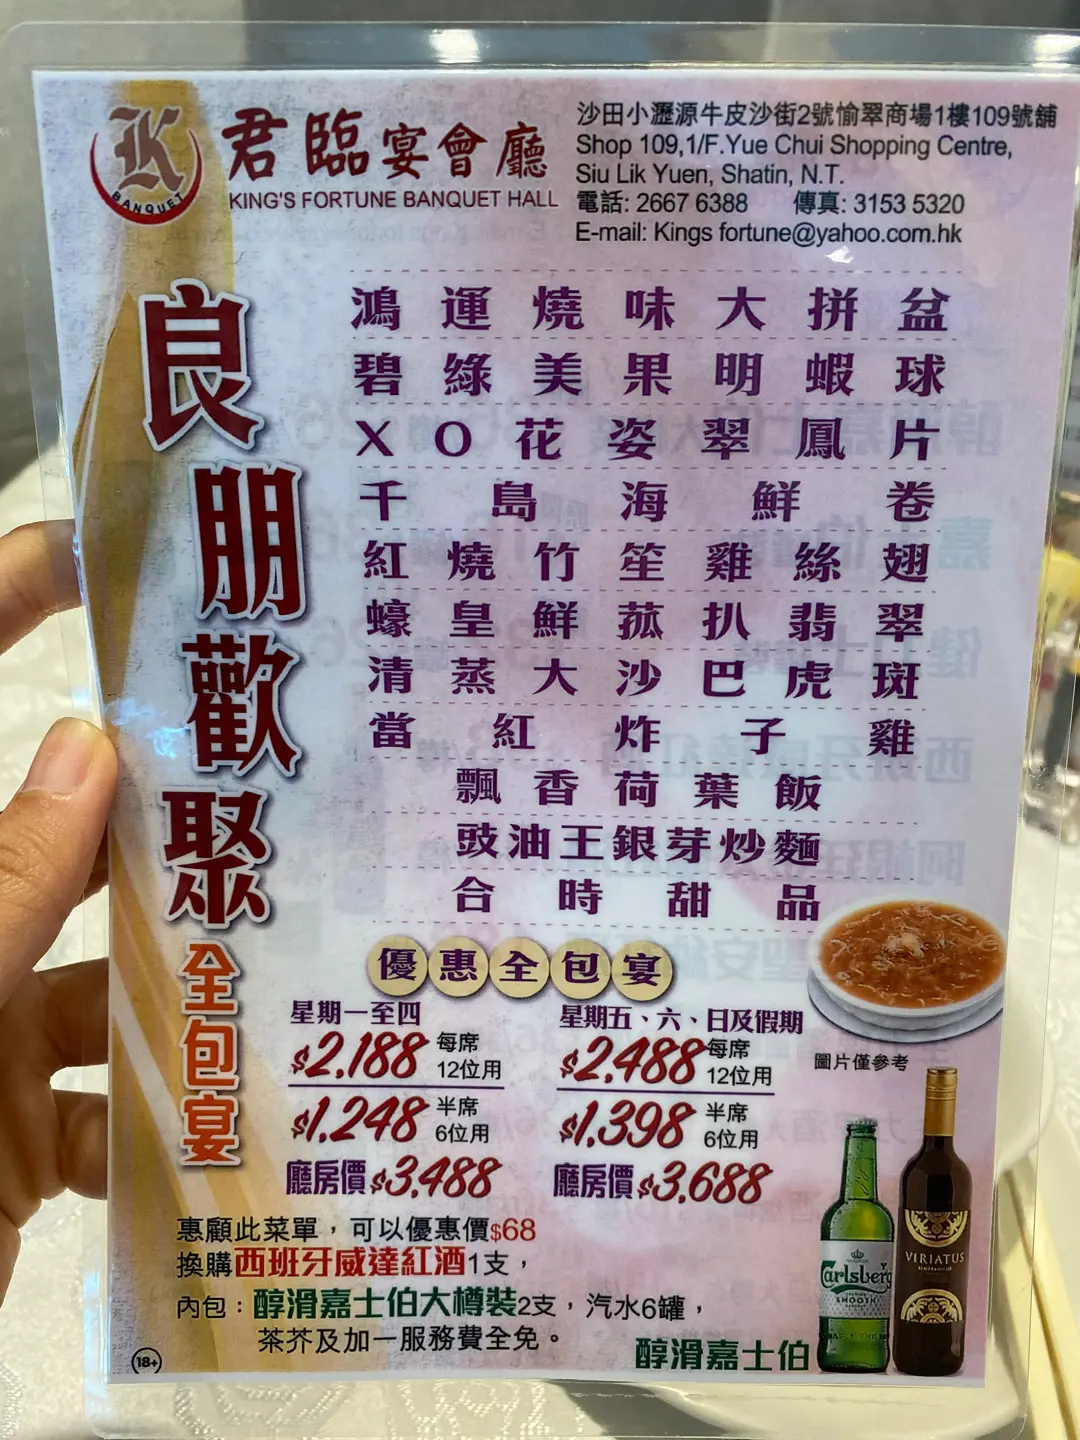 K
BANQUET
君臨宴會廳
KING'S FORTUNE BANQUET HALL
沙田小瀝源牛皮沙街2號愉翠商場1樓109號舖
Shop 109,1/F.Yue Chui Shopping Centre,
Siu Lik Yuen, Shatin, N.T.
電話: 2667 6388 傳真: 3153 5320
E-mail: Kings fortune@yahoo.com.hk
良朋歡聚全包宴
鴻運燒味大拼盆
碧綠美果明蝦球
XO花姿翠鳳片
千島海鮮卷
紅燒竹笙雞絲翅
蠔皇鮮菰扒翡翠
清蒸大沙巴虎斑
當紅炸子雞
飄香荷葉飯
豉油王銀芽炒麵
合時甜品
優惠全包宴
星期一至四
$2,188 每席 12位用
$1,248 半席 6位用
廳房價$3,488
星期五、六、日及假期
$2,488 每席 12位用
$1,398 半席 6位用
廳房價$3,688
圖片僅參考
惠顧此菜單，可以優惠價$68
換購西班牙威達紅酒1支，
內包：醇滑嘉士伯大樽裝2支，汽水6罐，
茶芥及加一服務費全免。
醇滑嘉士伯
18+
Carlsberg
SMOOTH
VIRIATUS